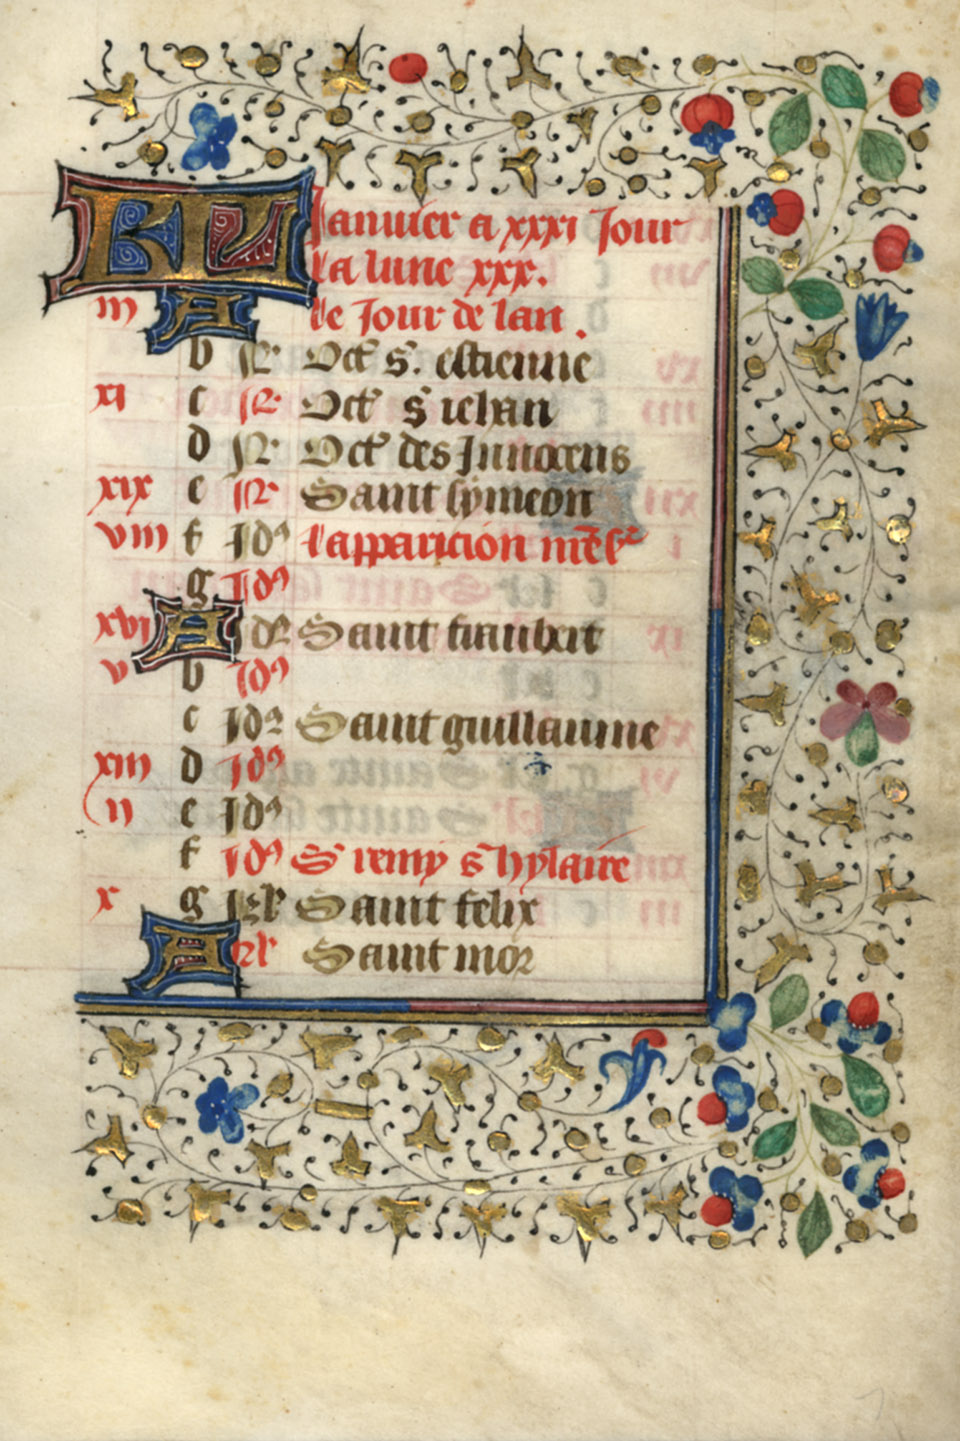 KL Januier a xxxi Jour
la lune xxx.
iii A le Jour de lan.
b N Oct s. estienne
xi c N Oct s iehan
d N Oct des Innocens
xix e N Saint symeon
viii f Id9 lapparicion
g Id9
xvi A Id9 Saint
v b Id9
c Id9 Saint guillaume
xiii d Id9
ii e Id9
f Id9 S remy s hylaire
x g kl Saint felix
A kl Saint mor